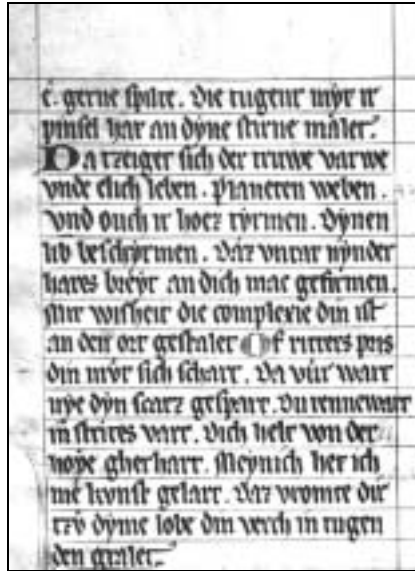 t. gerne spilt. Die tugent mýt ir
pinsel hat an dýne stirne malet.
Da tzeiget sich der truwe varwe
vnde elich leben. Planeten weben.
vnd ouch ir hoez týrmen. Dýnen
lib beschýrmen. Daz vntat nýnder
hares breýt an dich mac gefirmen.
Mit wisheit die complexie din ist
an den ort gestalet Of ritters pris
din mvt sich schart. Da vür wart
nýe dýn scatz gespart. Du rennewart
in strites vart. Dich helt von der
hoýe gherhart. Meýnich her ich
me kvnst gelart. Daz vromte dir
tzv dýme lobe din verch in tugen
den gralet.